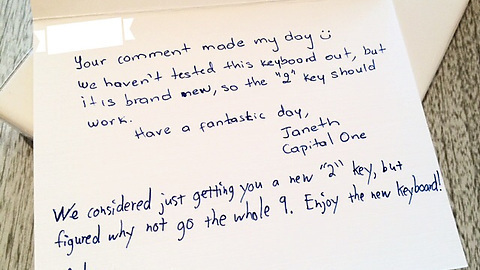 Your comment made my day ü
We haven't tested this keyboard out, but
it is brand new, so the "2" key should
work.
Have a fantastic day,
Janeth
Capital One
We considered just getting you a new "2" key, but
figured why not go the whole 9. Enjoy the new keyboard!